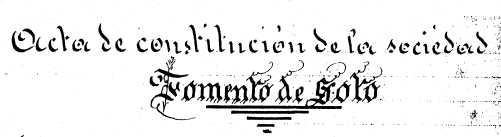 Acta de constitución de la sociedad
Fomento de Soto